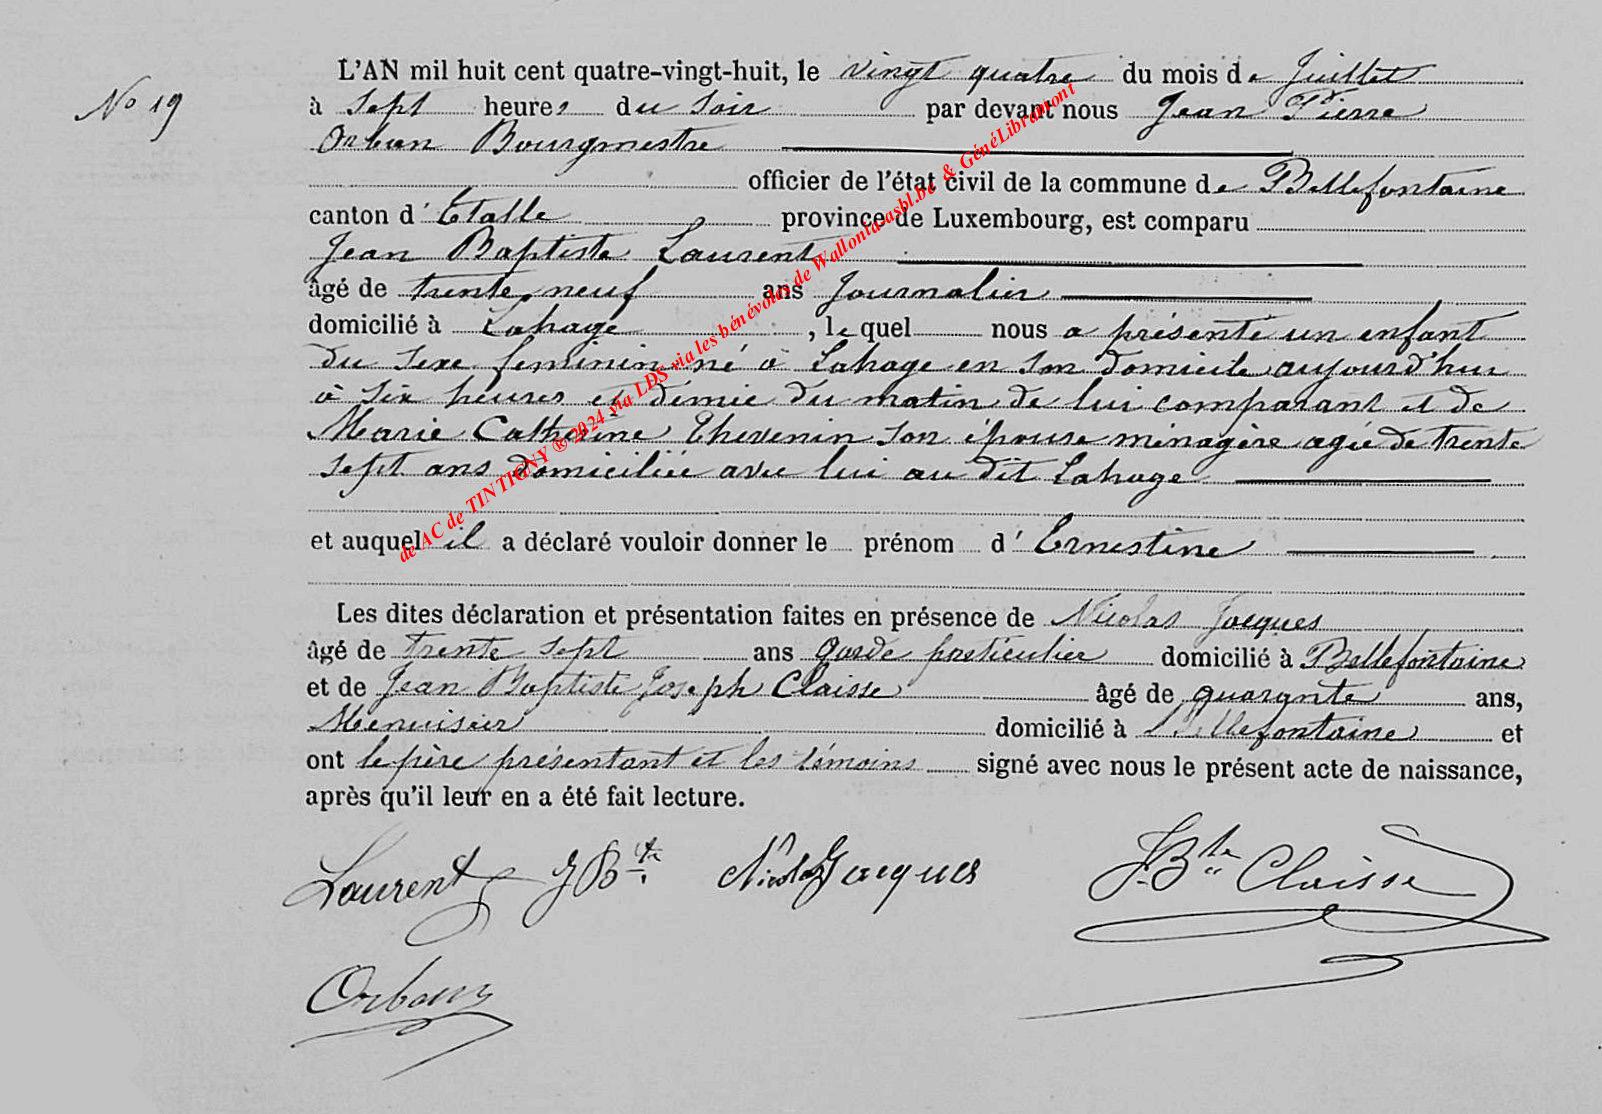 L'AN mil huit cent quatre-vingt-huit, le vingt quatre du mois de Juillet
No 19
à sept heures du soir par devant nous Jean Pierre
Orban Bourgmestre
officier de l'état civil de la commune de Bellefontaine
canton d' Etalle province de Luxembourg, est comparu
Jean Baptiste Laurent
âgé de trente neuf ans Journalier
domicilié à Lahage, lequel nous a présenté un enfant
du sexe feminin, né à Lahage en son domicile aujourd'hui
à six heures et démie du matin de lui comparant et de
Marie Catherine Thevenin son épouse ménagère agée de trente
sept ans domiciliée avec lui au dit Lahage
et auquel il a déclaré vouloir donner le prénom d' Ernestine
Les dites déclaration et présentation faites en présence de Nicolas Jacques
âgé de trente sept ans garde particulier domicilié à Bellefontaine
et de Jean Baptiste Joseph Claisse âgé de quarante ans,
Menuisier domicilié à Bellefontaine et
ont le père présentant et les témoins signé avec nous le présent acte de naissance,
après qu'il leur en a été fait lecture.
Laurent J Bte Nicolas Jacques J. Bte Claisse
Orban
de AC de TINTIGNY ® 2024 via LDS via les bénévoles de Wallonia-asbl.be & GénéLibramont